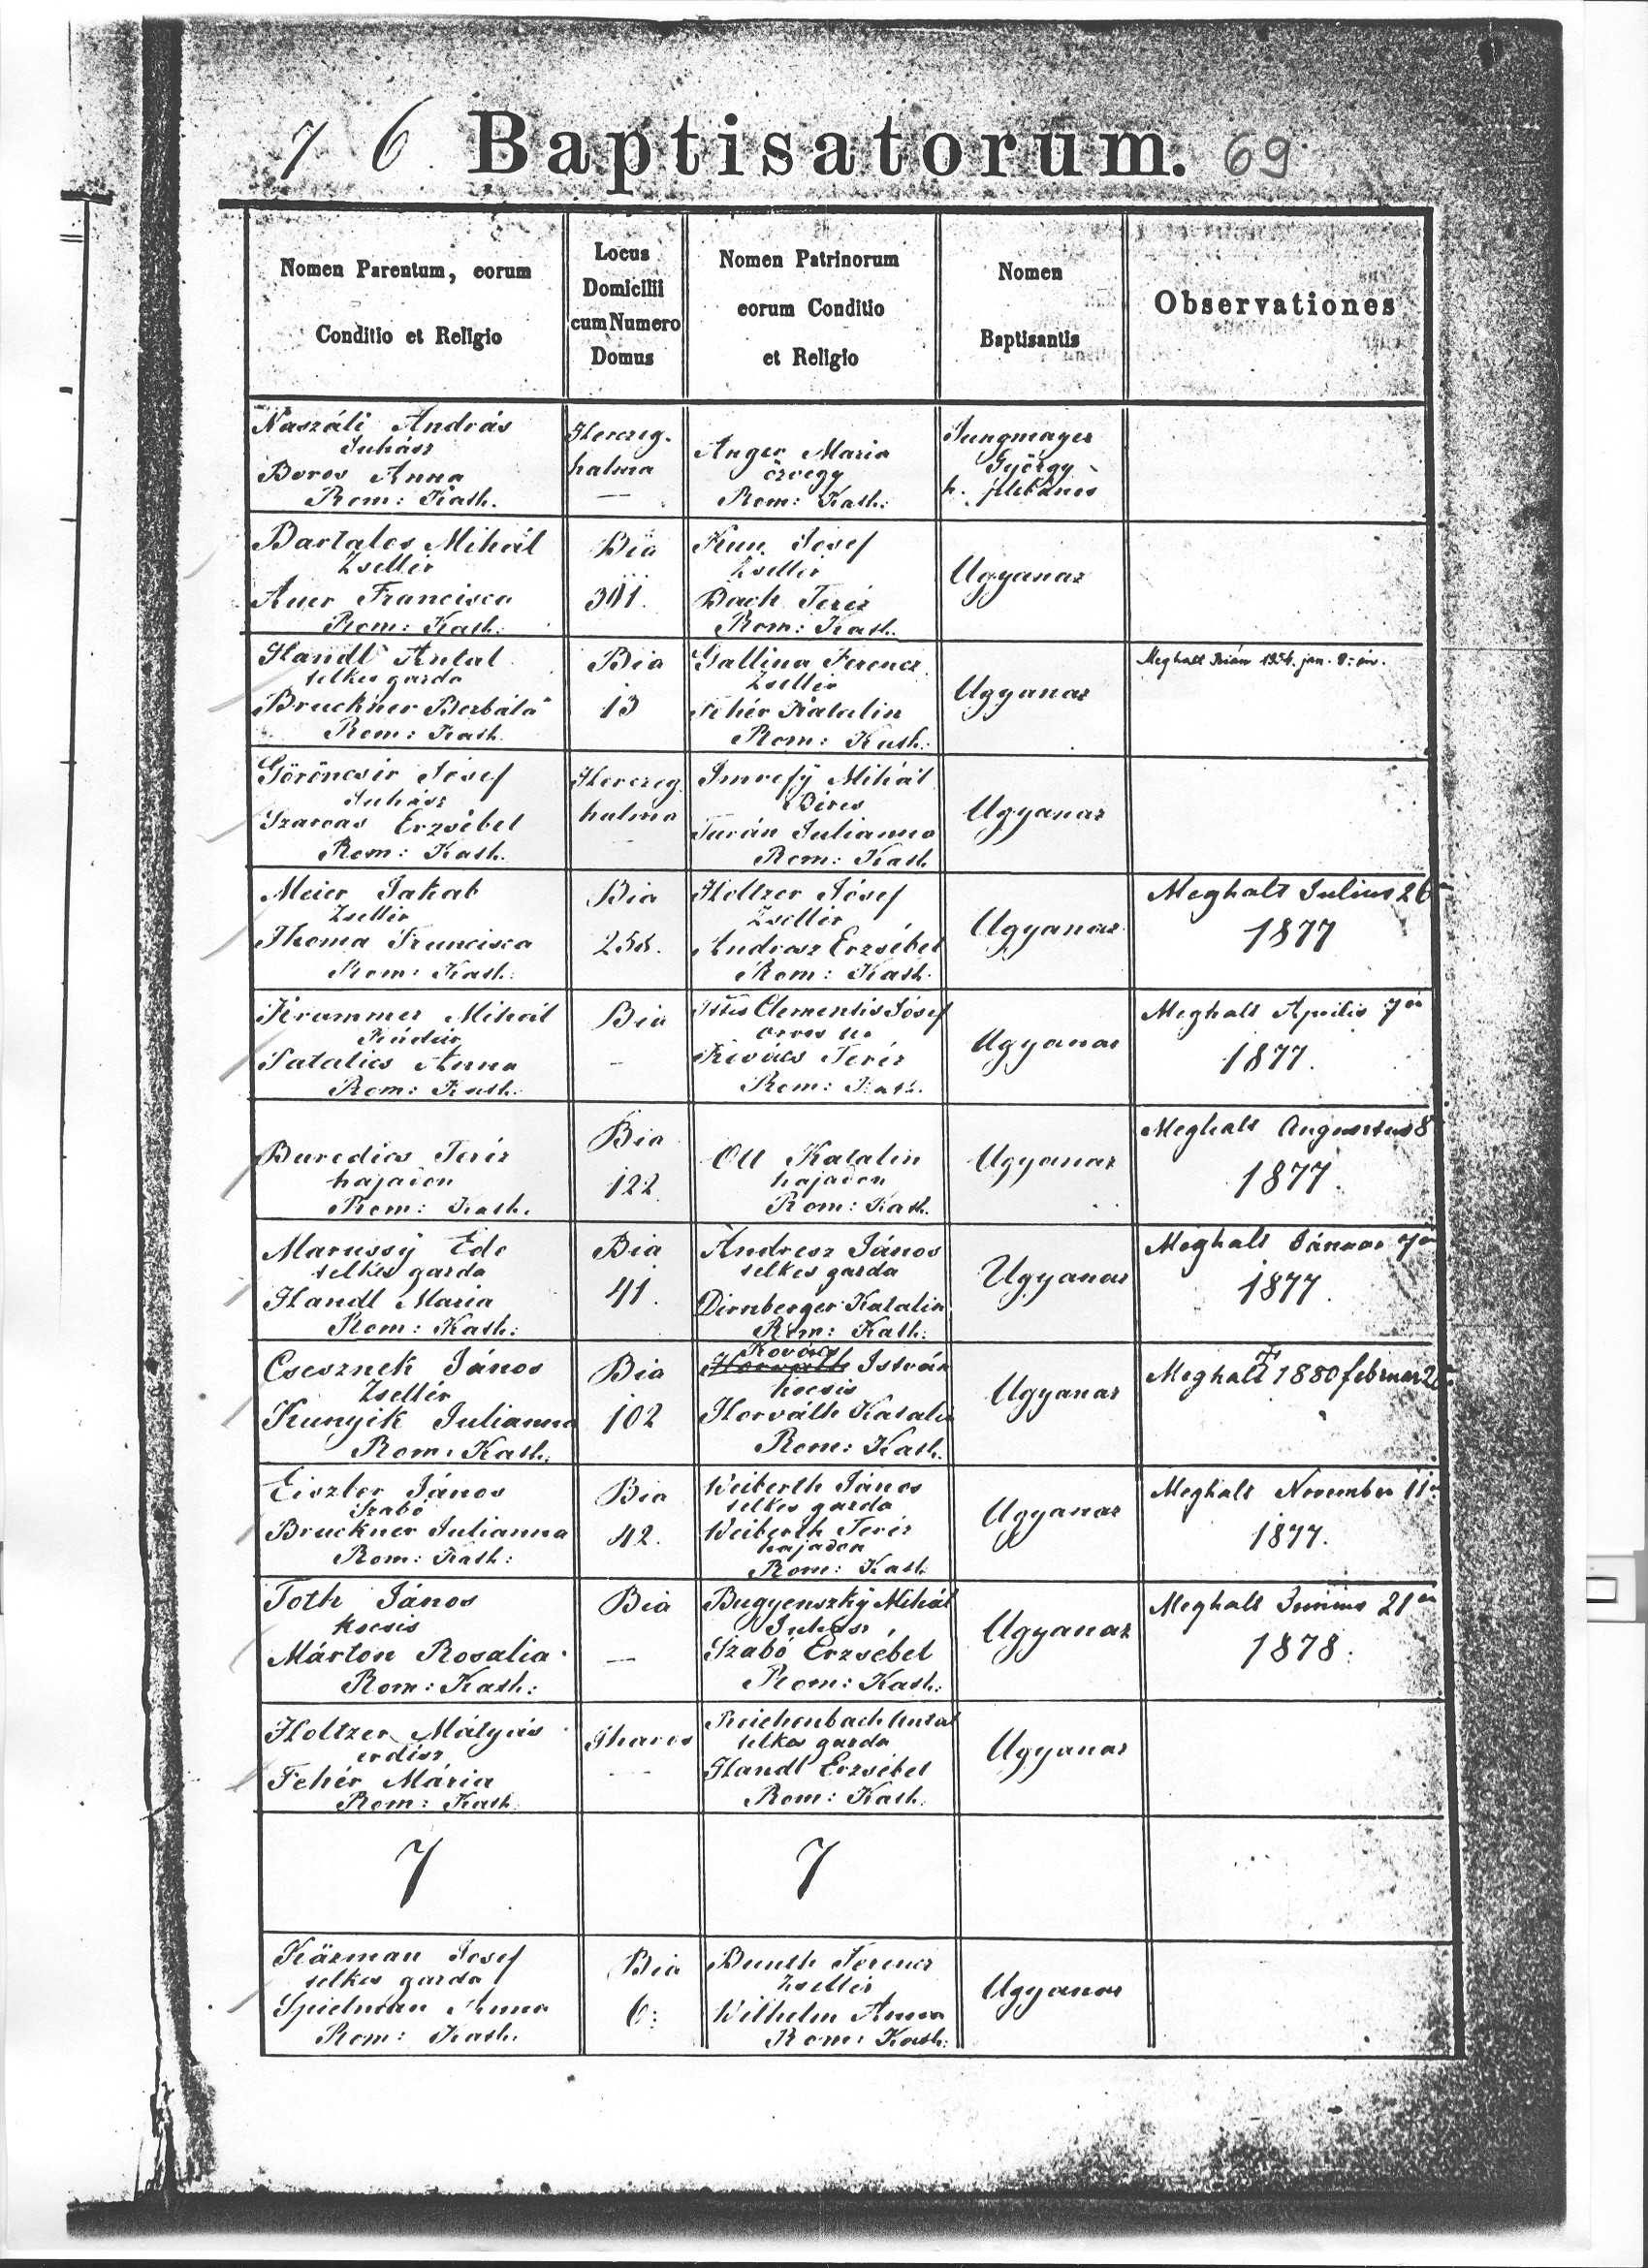 7 6. Baptisatorum. 69
Nomen Parentum, eorum
Conditio et Religio
Locus
Domicilii
cum Numero
Domus
Nomen Patrinorum
eorum Conditio
et Religio
Nomen
Baptisantis
Observationes
Naszáli András
Juhász
Boros Anna
Rom: Kath.
Herczeg-
halma
—
Anger Maria
özvegy
Rom: Kath:
Jungmayer
György
Bartalos Mihál
Zsellér
Auer Francisca
Rom: Kath:
Bia
301.
Kun Josef
Zsellér
Bach Teréz
Rom: Kath.
Ugyanaz
Handl Antal
telkes gazda
Bruckner Borbála
Rom: Kath.
Bia
13
Gallina Ferencz
Zsellér
Fehér Katalin
Rom: Kath:
Ugyanaz
Meghalt Bián 1954. jan. 8.-án.
Göröncsér Jósef
Juhász
Szarvas Erzsébet
Rom: Kath.
Herczeg
halma
Imrefÿ Mihál
Béres
Turán Julianna
Rom: Kath
Ugyanaz
Meier Jakab
Zsellér
Thoma Francisca
Rom: Kath:
Bia
258.
Holtzer Jósef
Zsellér
Andrasz Erzsébet
Rom: Kath.
Ugyanaz
Meghalt Julius 26
1877
Krammer Mihál
Kádár
Patalics Anna
Rom: Kath:
Bia
–
Clementis Jósef
orvos
Kovács Teréz
Rom: Kath.
Ugyanaz
Meghalt Aprilis 7én
1877.
Buredics Teréz
hajadon
Rom: Kath.
Bia
122
Ott Katalin
hajadon
Rom: Kath.
Ugyanaz
Meghalt Augusztus 8
1877.
Marussÿ Ede
telkes gazda
Handl Maria
Rom: Kath:
Bia
41.
Andresz János
telkes gazda
Dirnberger Katalin
Rom: Kath:
Ugyanaz
Meghalt Január 7én
1877.
Csesznek János
Zsellér
Kunyik Julianna
Rom: Kath.
Bia
102
Kovács
Horváth István
kocsis
Horváth Katalin
Rom: Kath.
Ugyanaz
Meghalt 1880 februar 2
Eiszler János
Szabó
Bruckner Julianna
Rom: Kath:
Bia
42.
Weiberth János
telkes gazda
Weiberth Teréz
hajadon
Rom: Kath
Ugyanaz
Meghalt November 11
1877.
Toth János
kocsis
Márton Rosalia
Rom: Kath:
Bia
—
Bugyenszkÿ Mihál
Juhász
Szabó Erzsébet
Rom: Kath:
Ugyanaz
Meghalt Junius 21én
1878.
Holtzer Mátyás
erdész
Fehér Mária
Rom: Kath.
Iharos
—
Reichenbach Antal
telkes gazda
Handl Erzsébet
Rom: Kath.
Ugyanaz
7
7
Kärman Josef
telkes gazda
Spielman Anna
Rom: Kath.
Bia
6:
Bunth Ferencz
Zsellér
Wilhelm Anna
Rom: Kath:
Ugyanaz